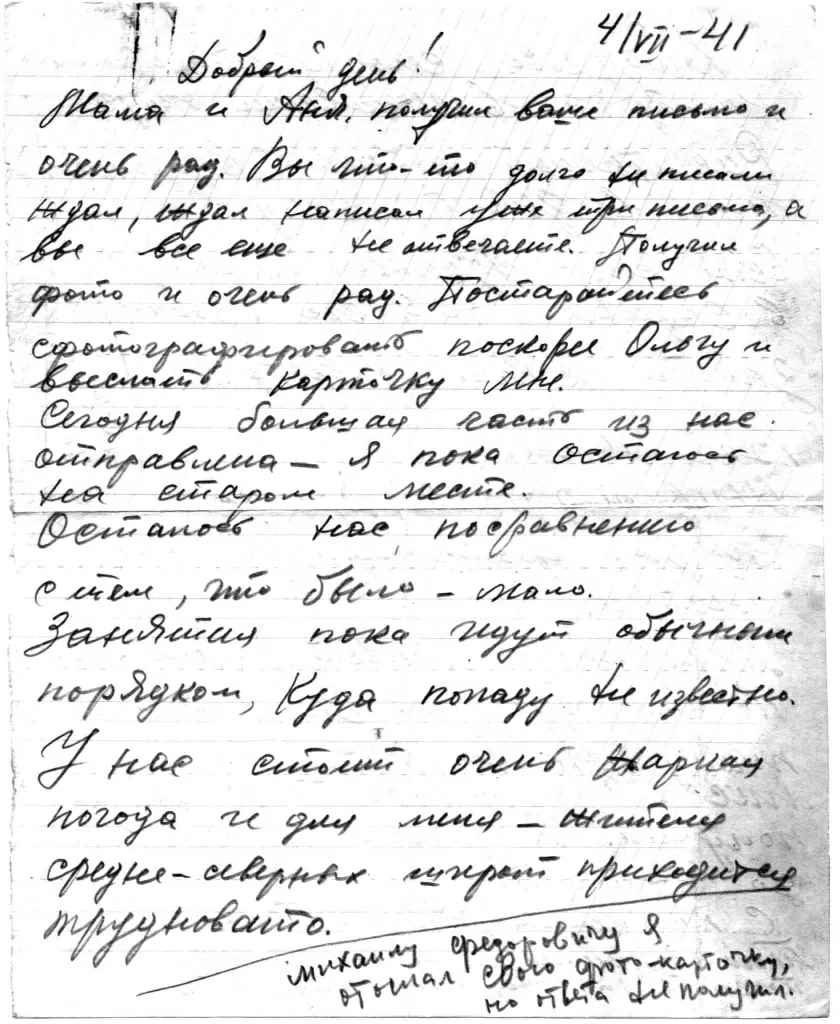 4/VII-41
Добрый день!
Мама и Аня. получил ваше письмо и
очень рад. Вы что-то долго не писали
ждал, ждал написал уже три письма, а
вы все еще не отвечаете. Получил
фото и очень рад. Постарайтесь
сфотографировать поскорее Ольгу и
выслать карточку мне.
Сегодня большая часть из нас
отправлена – я пока остаюсь
на старом месте.
Осталось нас посравнению
с тем, что было – мало.
Занятия пока идут обычным
порядком, Куда попаду не известно.
У нас стоит очень жаркая
погода и для меня – жителя
средне-северных широт приходится
трудновато.
Михаилу Федоровичу я
отослал свою фото-карточку,
но ответа не получил.